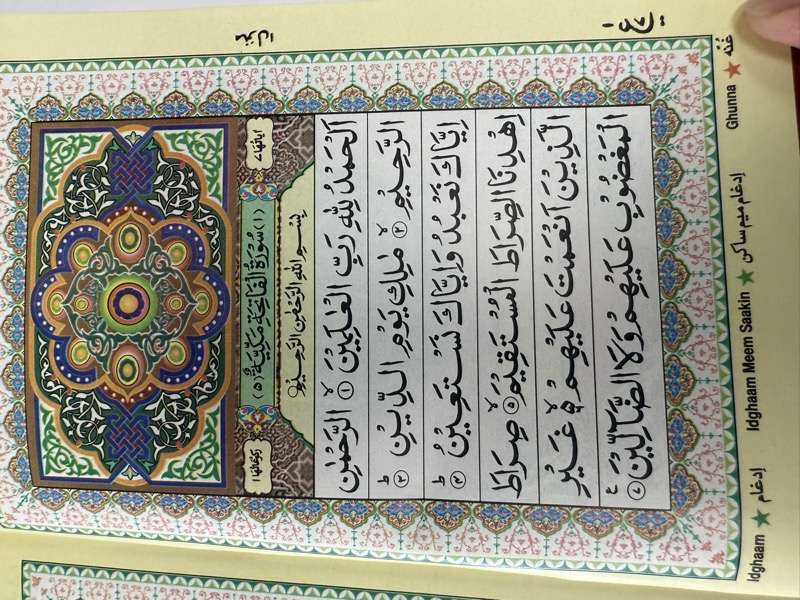 اٰیَاتُهَا ٧
(١) سُوْرَةُ الْفَاتِحَةِ مَكِّیَّةٌ (٥)
رُكُوْعُهَا ١
بِسْمِ اللّٰهِ الرَّحْمٰنِ الرَّحِیْمِ
اَلْحَمْدُ لِلّٰهِ رَبِّ الْعٰلَمِیْنَ ۙ ١ الرَّحْمٰنِ
الرَّحِیْمِ ۙ ٢ مٰلِكِ یَوْمِ الدِّیْنِ ؕ ٣
اِیَّاكَ نَعْبُدُ وَاِیَّاكَ نَسْتَعِیْنُ ؕ ٤
اِهْدِنَا الصِّرَاطَ الْمُسْتَقِیْمَ ۙ ٥ صِرَاطَ
الَّذِیْنَ اَنْعَمْتَ عَلَیْهِمْ ۙ۬ غَیْرِ
الْمَغْضُوْبِ عَلَیْهِمْ وَلَا الضَّآلِّیْنَ ٧
Idghaam ★ إدغام
Idghaam Meem Saakin ★ إدغام میم ساكن
Ghunna ★ غُنّه